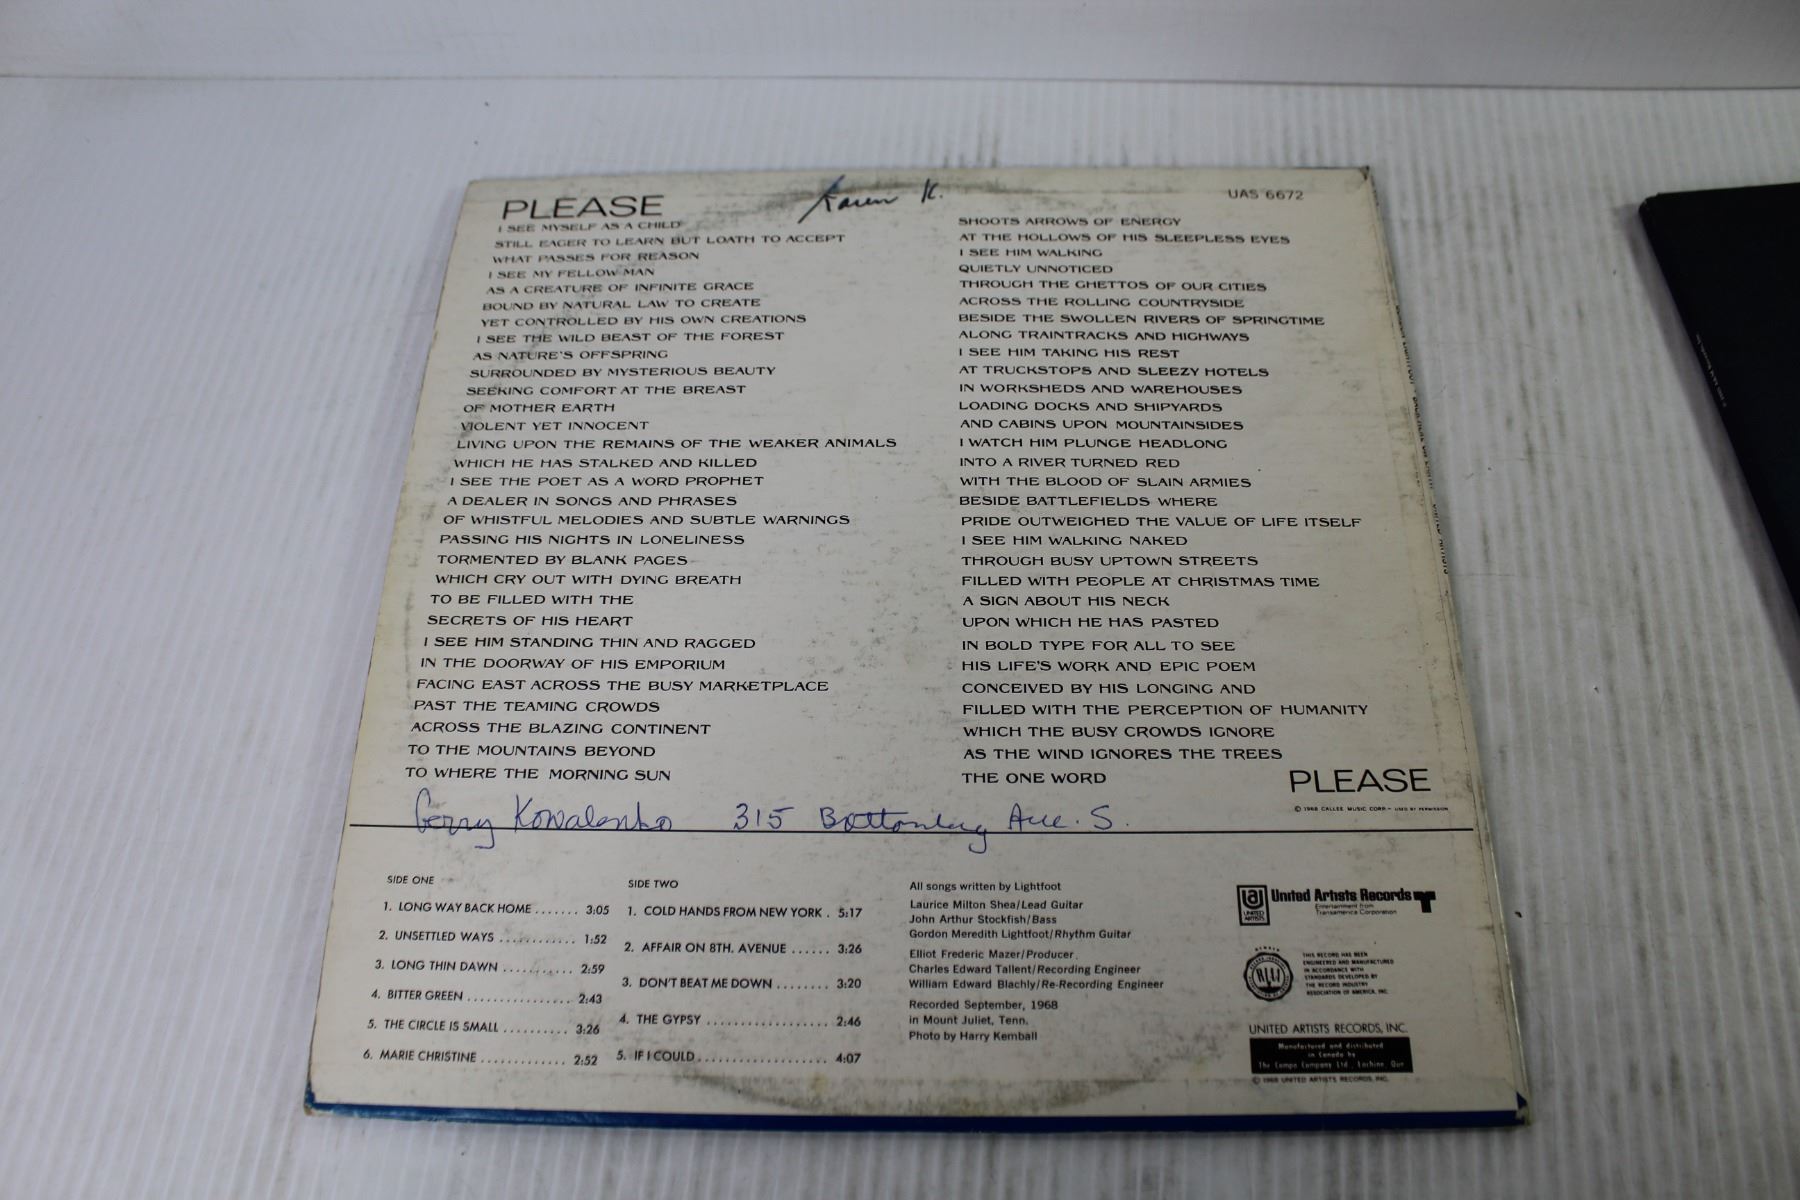 PLEASE
Karen K.
UAS 6672
I SEE MYSELF AS A CHILD
STILL EAGER TO LEARN BUT LOATH TO ACCEPT
WHAT PASSES FOR REASON
I SEE MY FELLOW MAN
AS A CREATURE OF INFINITE GRACE
BOUND BY NATURAL LAW TO CREATE
YET CONTROLLED BY HIS OWN CREATIONS
I SEE THE WILD BEAST OF THE FOREST
AS NATURE'S OFFSPRING
SURROUNDED BY MYSTERIOUS BEAUTY
SEEKING COMFORT AT THE BREAST
OF MOTHER EARTH
VIOLENT YET INNOCENT
LIVING UPON THE REMAINS OF THE WEAKER ANIMALS
WHICH HE HAS STALKED AND KILLED
I SEE THE POET AS A WORD PROPHET
A DEALER IN SONGS AND PHRASES
OF WHISTFUL MELODIES AND SUBTLE WARNINGS
PASSING HIS NIGHTS IN LONELINESS
TORMENTED BY BLANK PAGES
WHICH CRY OUT WITH DYING BREATH
TO BE FILLED WITH THE
SECRETS OF HIS HEART
I SEE HIM STANDING THIN AND RAGGED
IN THE DOORWAY OF HIS EMPORIUM
FACING EAST ACROSS THE BUSY MARKETPLACE
PAST THE TEAMING CROWDS
ACROSS THE BLAZING CONTINENT
TO THE MOUNTAINS BEYOND
TO WHERE THE MORNING SUN
SHOOTS ARROWS OF ENERGY
AT THE HOLLOWS OF HIS SLEEPLESS EYES
I SEE HIM WALKING
QUIETLY UNNOTICED
THROUGH THE GHETTOS OF OUR CITIES
ACROSS THE ROLLING COUNTRYSIDE
BESIDE THE SWOLLEN RIVERS OF SPRINGTIME
ALONG TRAINTRACKS AND HIGHWAYS
I SEE HIM TAKING HIS REST
AT TRUCKSTOPS AND SLEEZY HOTELS
IN WORKSHEDS AND WAREHOUSES
LOADING DOCKS AND SHIPYARDS
AND CABINS UPON MOUNTAINSIDES
I WATCH HIM PLUNGE HEADLONG
INTO A RIVER TURNED RED
WITH THE BLOOD OF SLAIN ARMIES
BESIDE BATTLEFIELDS WHERE
PRIDE OUTWEIGHED THE VALUE OF LIFE ITSELF
I SEE HIM WALKING NAKED
THROUGH BUSY UPTOWN STREETS
FILLED WITH PEOPLE AT CHRISTMAS TIME
A SIGN ABOUT HIS NECK
UPON WHICH HE HAS PASTED
IN BOLD TYPE FOR ALL TO SEE
HIS LIFE'S WORK AND EPIC POEM
CONCEIVED BY HIS LONGING AND
FILLED WITH THE PERCEPTION OF HUMANITY
WHICH THE BUSY CROWDS IGNORE
AS THE WIND IGNORES THE TREES
THE ONE WORD
PLEASE
© 1968 CALLEE MUSIC CORP. - USED BY PERMISSION
Gerry Kowalenko 315 Bottomley Ave. S.
SIDE ONE
1. LONG WAY BACK HOME ....... 3:05
2. UNSETTLED WAYS ............ 1:52
3. LONG THIN DAWN ........... 2:59
4. BITTER GREEN ................ 2:43
5. THE CIRCLE IS SMALL .......... 3:26
6. MARIE CHRISTINE ............. 2:52
SIDE TWO
1. COLD HANDS FROM NEW YORK . 5:17
2. AFFAIR ON 8TH. AVENUE ...... 3:26
3. DON'T BEAT ME DOWN ........ 3:20
4. THE GYPSY .................. 2:46
5. IF I COULD.................... 4:07
All songs written by Lightfoot
Laurice Milton Shea/Lead Guitar
John Arthur Stockfish/Bass
Gordon Meredith Lightfoot/Rhythm Guitar
Elliot Frederic Mazer/Producer
Charles Edward Tallent/Recording Engineer
William Edward Blachly/Re-Recording Engineer
Recorded September, 1968
in Mount Juliet, Tenn.
Photo by Harry Kemball
UNITED ARTISTS
United Artists Records
Entertainment from
Transamerica Corporation
THIS RECORD HAS BEEN
ENGINEERED AND MANUFACTURED
IN ACCORDANCE WITH
STANDARDS DEVELOPED BY
THE RECORD INDUSTRY
ASSOCIATION OF AMERICA, INC.
UNITED ARTISTS RECORDS, INC.
Manufactured and distributed
in Canada by
The Compo Company Ltd., Lachine, Que.
© 1968 UNITED ARTISTS RECORDS, INC.